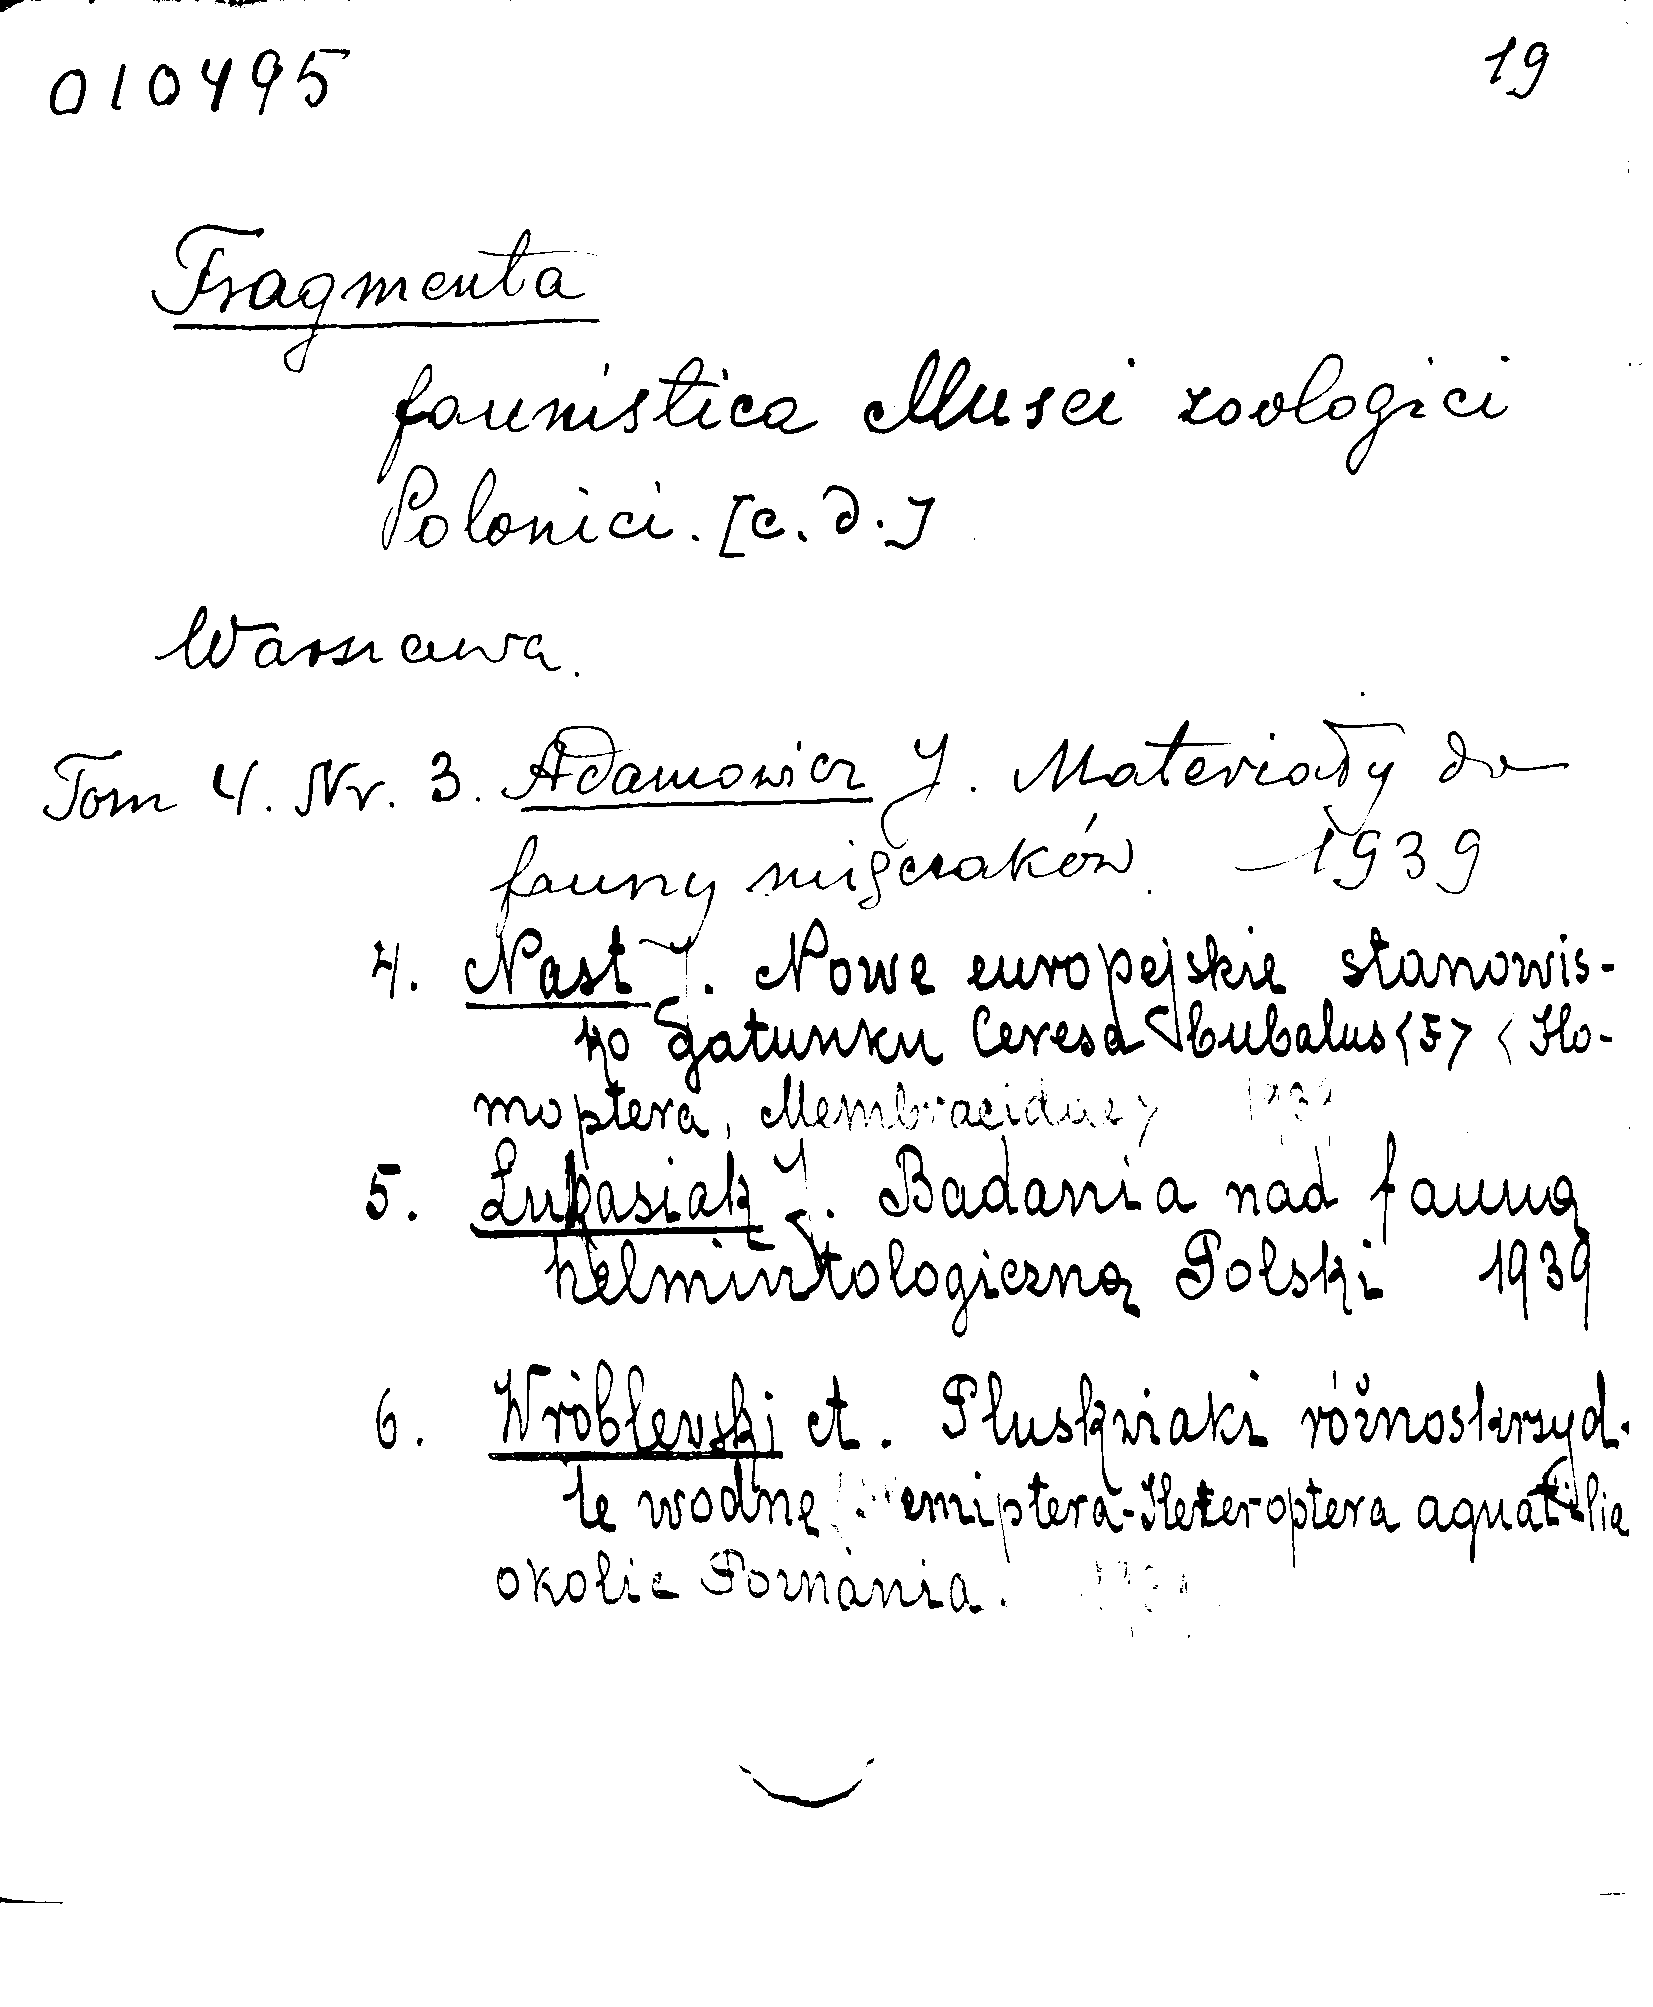 010495
19
Fragmenta
faunistica Musei zoologici
Polonici. [c.d.]
Warszawa.
Tom 4. Nr. 3. Adamowicz J. Materiały do
fauny mięczaków. 1939
4. Nast J. Nowe europejskie stanowis-
ko gatunku Ceresa bubalus (F) (Ho-
moptera, Membracidae) 1939
5. Łukasiak J. Badania nad fauną
helmintologiczną Polski 1939
6. Wróblewski A. Pluskwiaki różnoskrzyd-
łe wodne (Hemiptera-Heteroptera aquatilia
okolic Poznania.